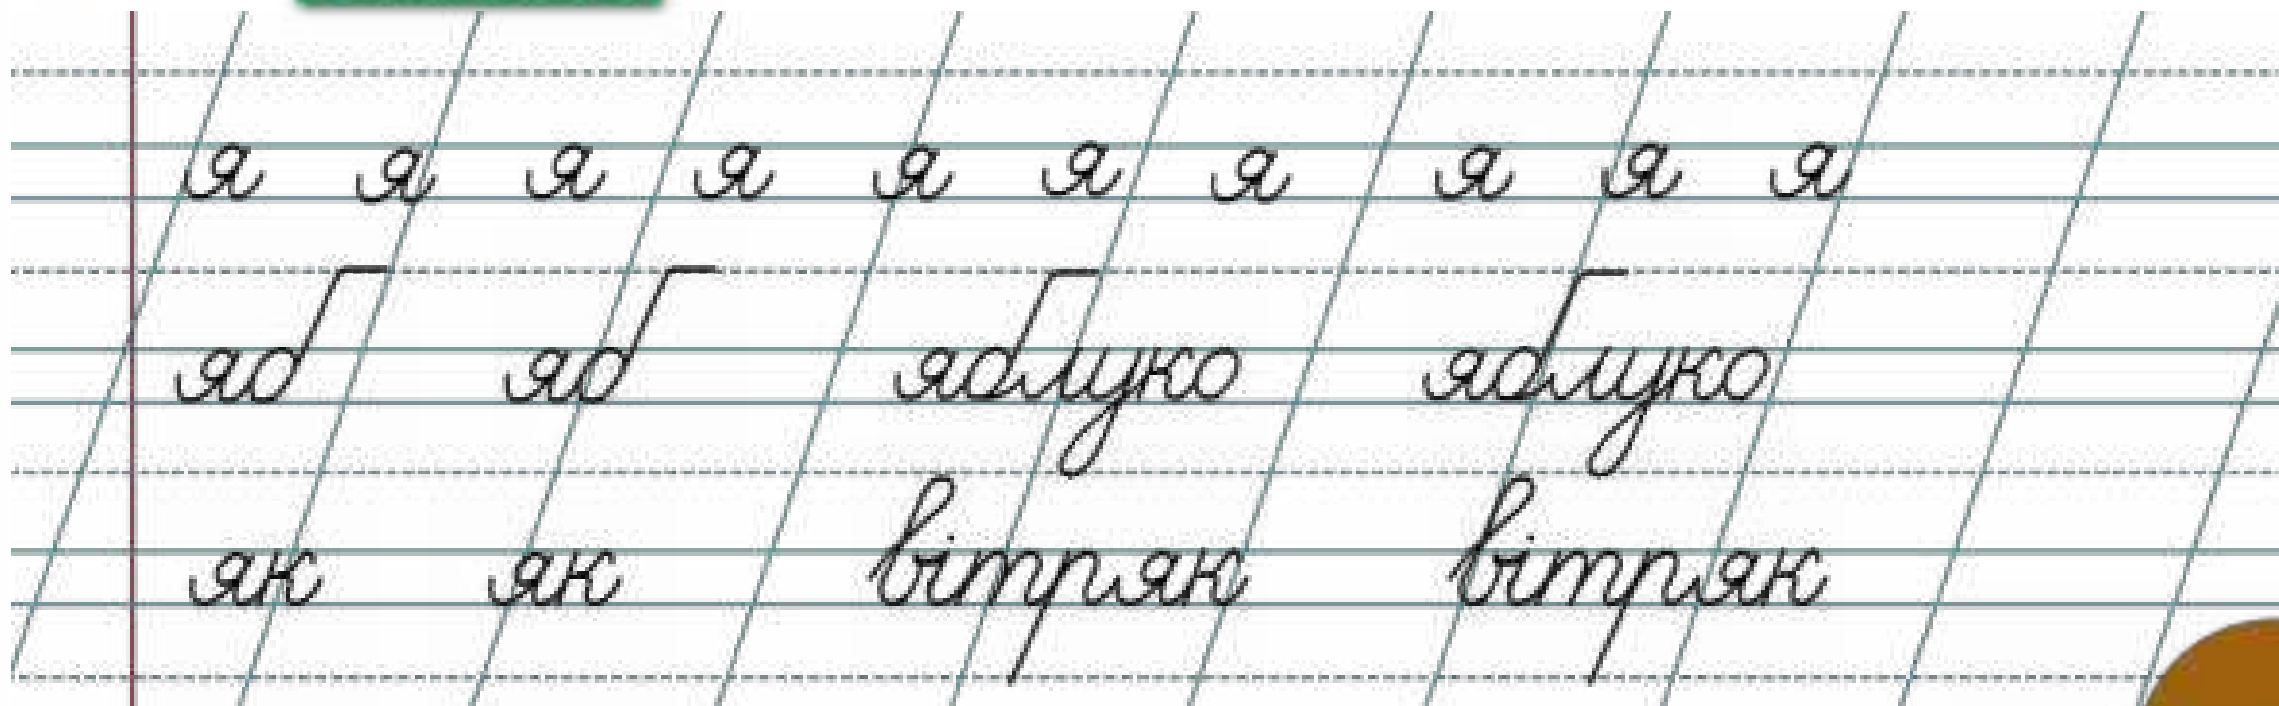 я я я я я я я я я я
яб яб яблуко яблуко
як як вітряк вітряк